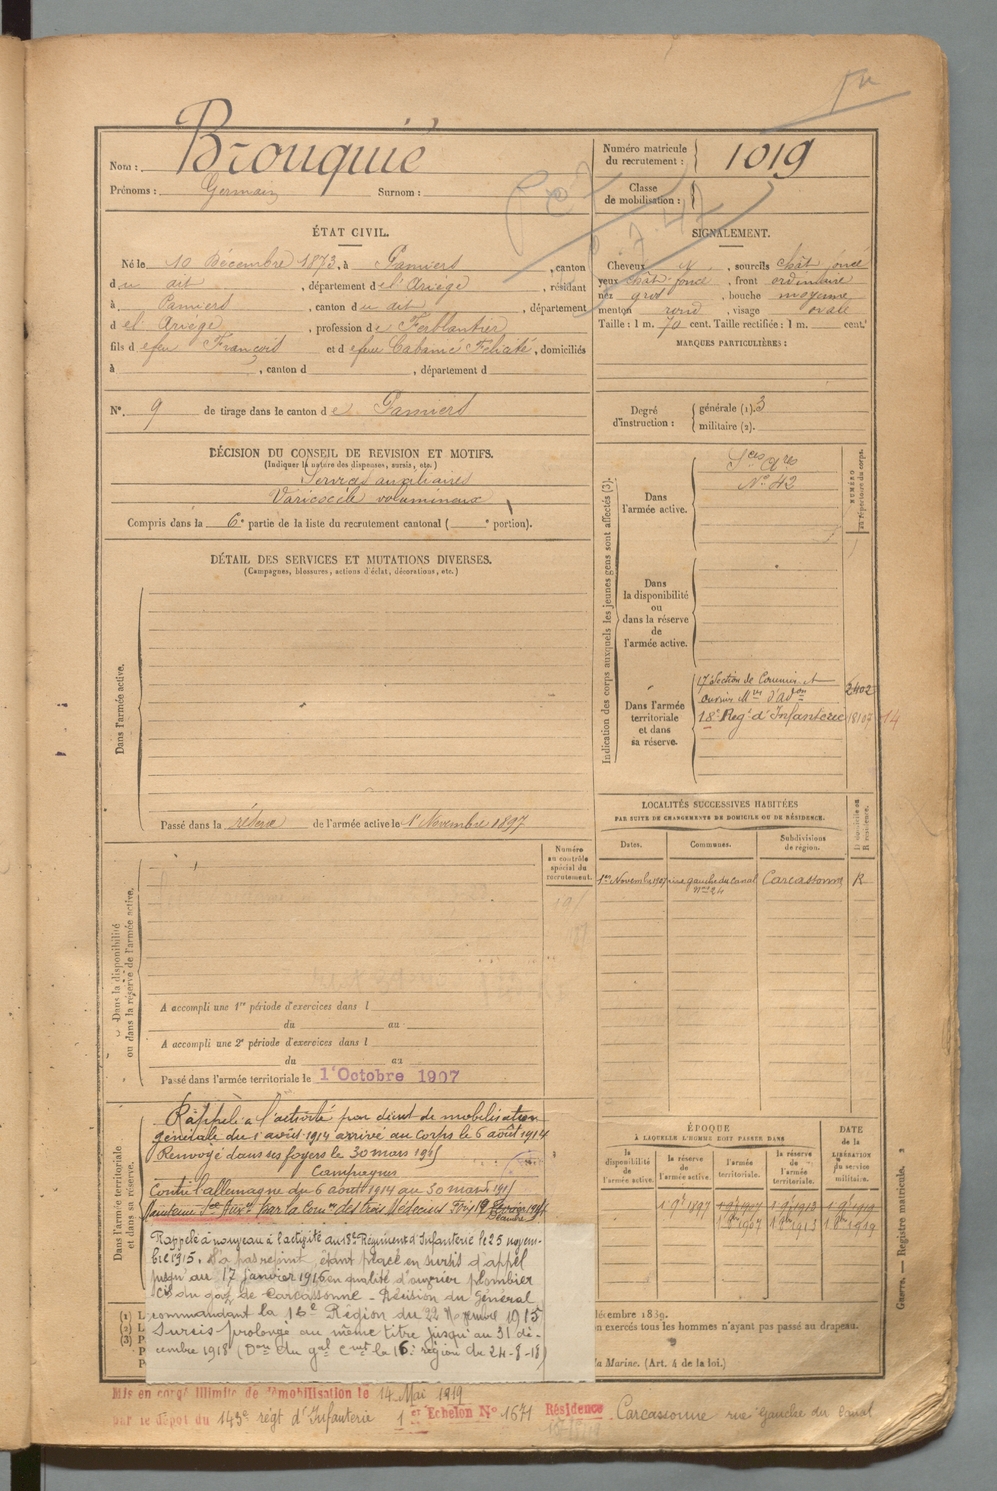 Nom : Brouquié
Prénoms : Germain Surnom :
Numéro matricule du recrutement : 1019
Classe de mobilisation :
ÉTAT CIVIL.
Né le 10 Décembre 1873, à Pamiers, canton
du dit, département de l'Ariège, résidant
à Pamiers, canton du dit, département
de l'Ariège, profession de Ferblantier
fils de feu François et de feue Cabanié Félicité, domiciliés
à , canton d , département d
N°. 9 de tirage dans le canton de Pamiers
SIGNALEMENT.
Cheveux et, sourcils chât foncé
yeux chât foncé, front ordinaire
nez gros, bouche moyenne
menton rond, visage ovale
Taille : 1 m. 70 cent. Taille rectifiée : 1 m. cent.
MARQUES PARTICULIÈRES :
Degré d'instruction : générale (1). 3
militaire (2).
DÉCISION DU CONSEIL DE REVISION ET MOTIFS.
(Indiquer la nature des dispenses, sursis, etc.)
Services auxiliaires
Varicocèle volumineux
Compris dans la 6e partie de la liste du recrutement cantonal ( e portion).
DÉTAIL DES SERVICES ET MUTATIONS DIVERSES.
(Campagnes, blessures, actions d'éclat, décorations, etc.)
Dans l'armée active.
Passé dans la réserve de l'armée active le 1er Novembre 1897
Indication des corps auxquels les jeunes gens sont affectés (3).
NUMÉRO au répertoire du corps.
Dans l'armée active.
Sces Ares
N° 42
Dans la disponibilité ou dans la réserve de l'armée active.
Dans l'armée territoriale et dans sa réserve.
17e Section de Commis et
ouvriers Mres d'Adon 2402
18e Régt d'Infanterie 18107 14
LOCALITÉS SUCCESSIVES HABITÉES
PAR SUITE DE CHANGEMENTS DE DOMICILE OU DE RÉSIDENCE.
Dates. Communes. Subdivisions de région. D domicile ou R résidence.
1er Novembre 1907 rue gauche du canal n° 24 Carcassonne R
Numéro au contrôle spécial du recrutement.
Dans la disponibilité ou dans la réserve de l'armée active.
A accompli une 1re période d'exercices dans l
du au
A accompli une 2e période d'exercices dans l
du au
Passé dans l'armée territoriale le 1er Octobre 1907
Dans l'armée territoriale et dans sa réserve.
Rappelé à l'activité par décret de mobilisation
générale du 1er août 1914 arrivé au corps le 6 août 1914
Renvoyé dans ses foyers le 30 mars 1915
Campagnes
Contre l'allemagne du 6 août 1914 au 30 mars 1915
Maintenu Sce Auxre par la Comon des trois Médecins Foix 19
Rappelé à nouveau à l'activité au 18e Régiment d'Infanterie le 25 novem-
bre 1915. N'a pas rejoint, étant placé en sursis d'appel
jusqu'au 17 Janvier 1916 en qualité d'ouvrier plombier
Cie du gaz de Carcassonne - Décision du Général
commandant la 16e Région du 22 Novembre 1915
Sursis prolongé au même titre jusqu'au 31 dé-
cembre 1918 (Don du gal Cmt la 16e région du 24-8-18)
ÉPOQUE
À LAQUELLE L'HOMME DOIT PASSER DANS
la disponibilité de l'armée active. la réserve de l'armée active. l'armée territoriale. la réserve de l'armée territoriale.
DATE de la LIBÉRATION du service militaire.
1 9bre 1897 1 9bre 1907 1 9bre 1913 1 9bre 1919
1 8bre 1907 1 8bre 1913 1 8bre 1919
décembre 1889.
n exercés tous les hommes n'ayant pas passé au drapeau.
la Marine. (Art. 4 de la loi.)
Guerre. — Registre matricule.
Mis en congé illimité de démobilisation le 14 Mai 1919
par le dépôt du 143e régt d'Infanterie 1er Echelon N° 1671 Résidence Carcassonne rue Gauche du Canal